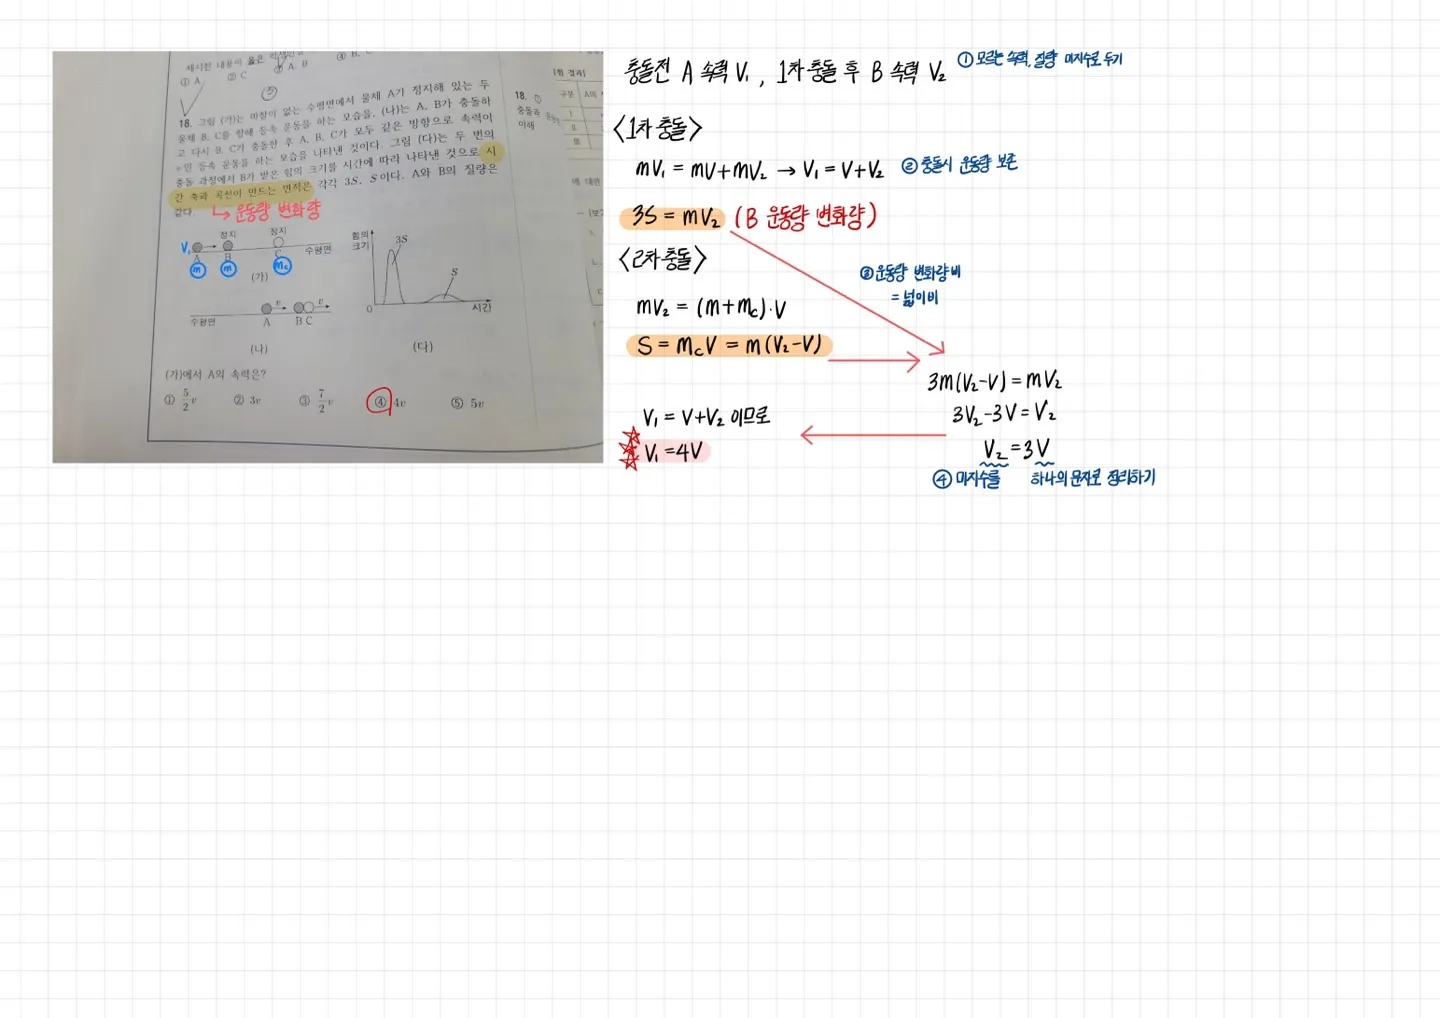 제시한 내용이 옳은
① A ② C ③ A, B ④ B, C
18. 그림 (가)는 마찰이 없는 수평면에서 물체 A가 정지해 있는 두
물체 B, C를 향해 등속 운동을 하는 모습을, (나)는 A, B가 충돌하
고 다시 B, C가 충돌한 후 A, B, C가 모두 같은 방향으로 속력이
v인 등속 운동을 하는 모습을 나타낸 것이다. 그림 (다)는 두 번의
충돌 과정에서 B가 받은 힘의 크기를 시간에 따라 나타낸 것으로 시
간 축과 곡선이 만드는 면적은 각각 3S, S이다. A와 B의 질량은
같다.
↳ 운동량 변화량
V₁ 정지 정지
A B C 수평면
m m mc
(가)
v v
수평면 A B C
(나)
힘의
크기
3S
S
0 시간
(다)
(가)에서 A의 속력은?
① 5/2 v ② 3v ③ 7/2 v ④ 4v ⑤ 5v
[험 결과]
18. ①
충돌과
이해
구분
I
II
III
에 대한
충돌전 A 속력 V₁ , 1차충돌 후 B 속력 V₂
① 모르는 속력, 질량 미지수로 두기
<1차 충돌>
mV₁ = mV+mV₂ → V₁ = V+V₂
② 충돌시 운동량 보존
3S = mV₂ (B 운동량 변화량)
<2차 충돌>
③ 운동량 변화량 비
= 넓이비
mV₂ = (m+mc)·V
S = mcV = m(V₂-V)
3m(V₂-V) = mV₂
3V₂-3V = V₂
V₂ = 3V
④ 미지수를 하나의 문자로 정리하기
V₁ = V+V₂ 이므로
V₁ = 4V